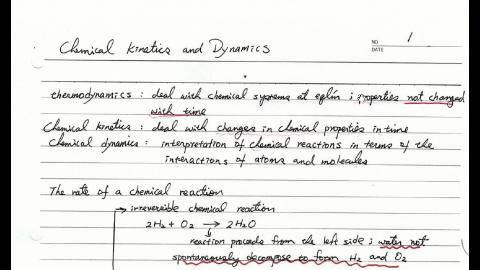 NO. 1
DATE
Chemical Kinetics and Dynamics
thermodynamics : deal with chemical systems at eqlm ; properties not changed
with time
Chemical kinetics : deal with changes in chemical properties in time
Chemical dynamics : interpretation of chemical reactions in terms of the
interactions of atoms and molecules
The rate of a chemical reaction
irreversible chemical reaction
2H₂ + O₂ → 2H₂O
reaction proceeds from the left side ; water not
spontaneously decompose to form H₂ and O₂